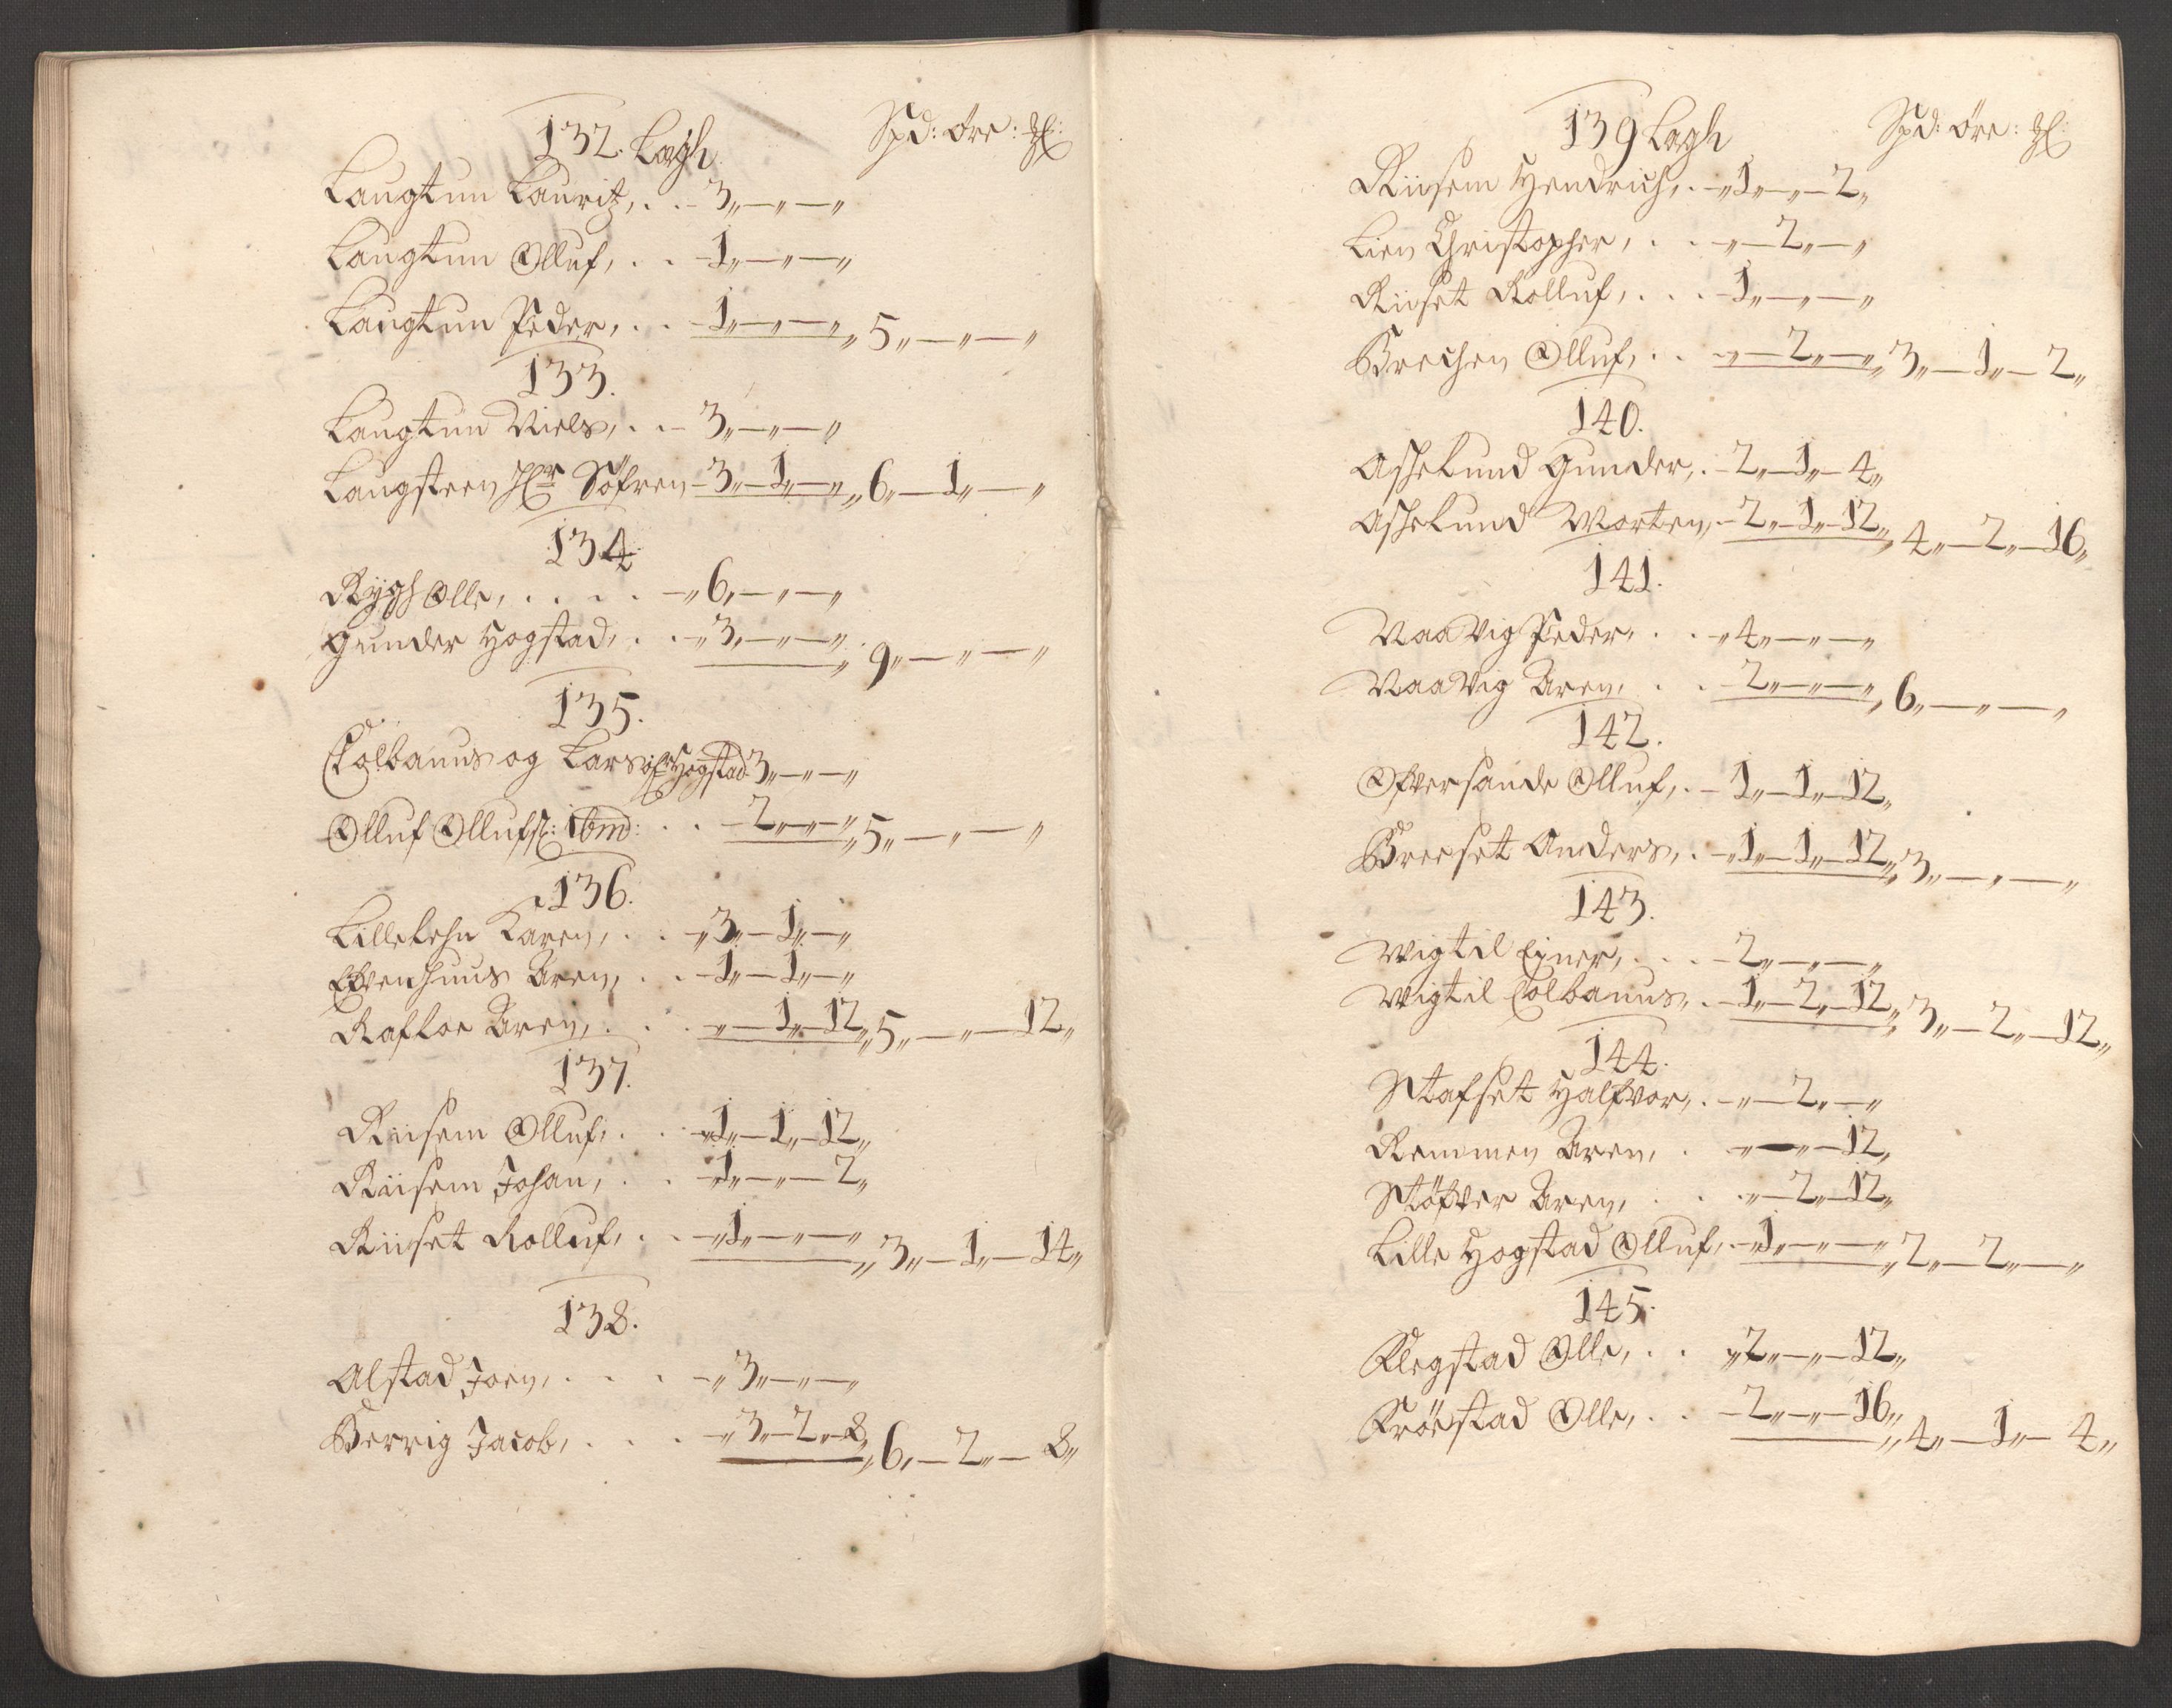 132. Lagh Spd: öre: ℔:
Laugtun Lauritz, . . - 3„ - „ - „
Laugtun Olluf, . . - 1„ - „ - „
Laugtun Peder, . . - 1„ - „ - „ 5„ - „ - „
133.
Laugtun Niels, . . - 3„ - „ - „
Laugsteen Hr Söfren - 3„ - 1„ - „ 6„ - 1„ - „
134
Rygh Olle, . . . . - „ 6„ - „ - „
Gunder Hogstad, . . - „ 3„ - „ - „ 9„ - „ - „
135.
Colbanus og Lars Hogstad 3„ - „ - „
Olluf Ollufs: ibm: . . - 2„ - „ - „ 5„ - „ - „
136.
Lillelehn Karen, . . - „ 3„ - 1„ - „
Efvenhuus Aren, . . - 1„ - 1„ - „
Rafloe Aren, . . . - „ - 1„ - 12„ 5„ - „ - 12„
137.
Riisem Olluf, . . - „ 1„ - 1„ - 12„
Riisem Johan, . . - 1„ - „ - 2„
Riiset Rolluf, . . - „ 1„ - „ - „ 3„ - 1„ - 14„
138.
Alstad Joen, . . . - „ 3„ - „ - „
Berrig Jacob, . . . - „ 3„ - 2„ - 8„ 6„ - 2„ - 8„
139 Lagh Spd: öre: ℔:
Riisem Hendrich, . - „ 1„ - „ - 2„
Lien Christopher, . . - „ - 2„ - „
Riiset Rolluf, . . . - 1„ - „ - „
Brechen Olluf, . . - „ - 2„ - „ 3„ - 1„ - 2„
140.
Asshelund Gunder, . - 2„ - 1„ - 4„
Asshelund Morten, - 2„ - 1„ - 12„ 4„ - 2„ - 16„
141.
Vaavig Peder, . . - „ 4„ - „ - „
Vaavig Aren, . . - 2„ - „ - „ 6„ - „ - „
142.
Ofversande Olluf, . - 1„ - 1„ - 12„
Breeset Anders, . - „ 1„ - 1„ - 12„ 3„ - „ - „
143.
Wigtil Einer, . . . - 2„ - „ - „
Wigtil Colbanus, . - 1„ - 2„ - 12„ 3„ - 2„ - 12„
144.
Stafset Halfvor, . - „ - 2„ - „
Remmen Aren, . - „ - „ - 12„
Stöfver Aren, . . . - „ - 2„ - 12„
Lille Hogstad Olluf, - „ 1„ - „ - „ 2„ - 2„ - „
145.
Klegstad Olle, . . „ 2„ - „ - 12„
Kröestad Olle, . . - 2„ - „ - 16„ 4„ - 1„ - 4„